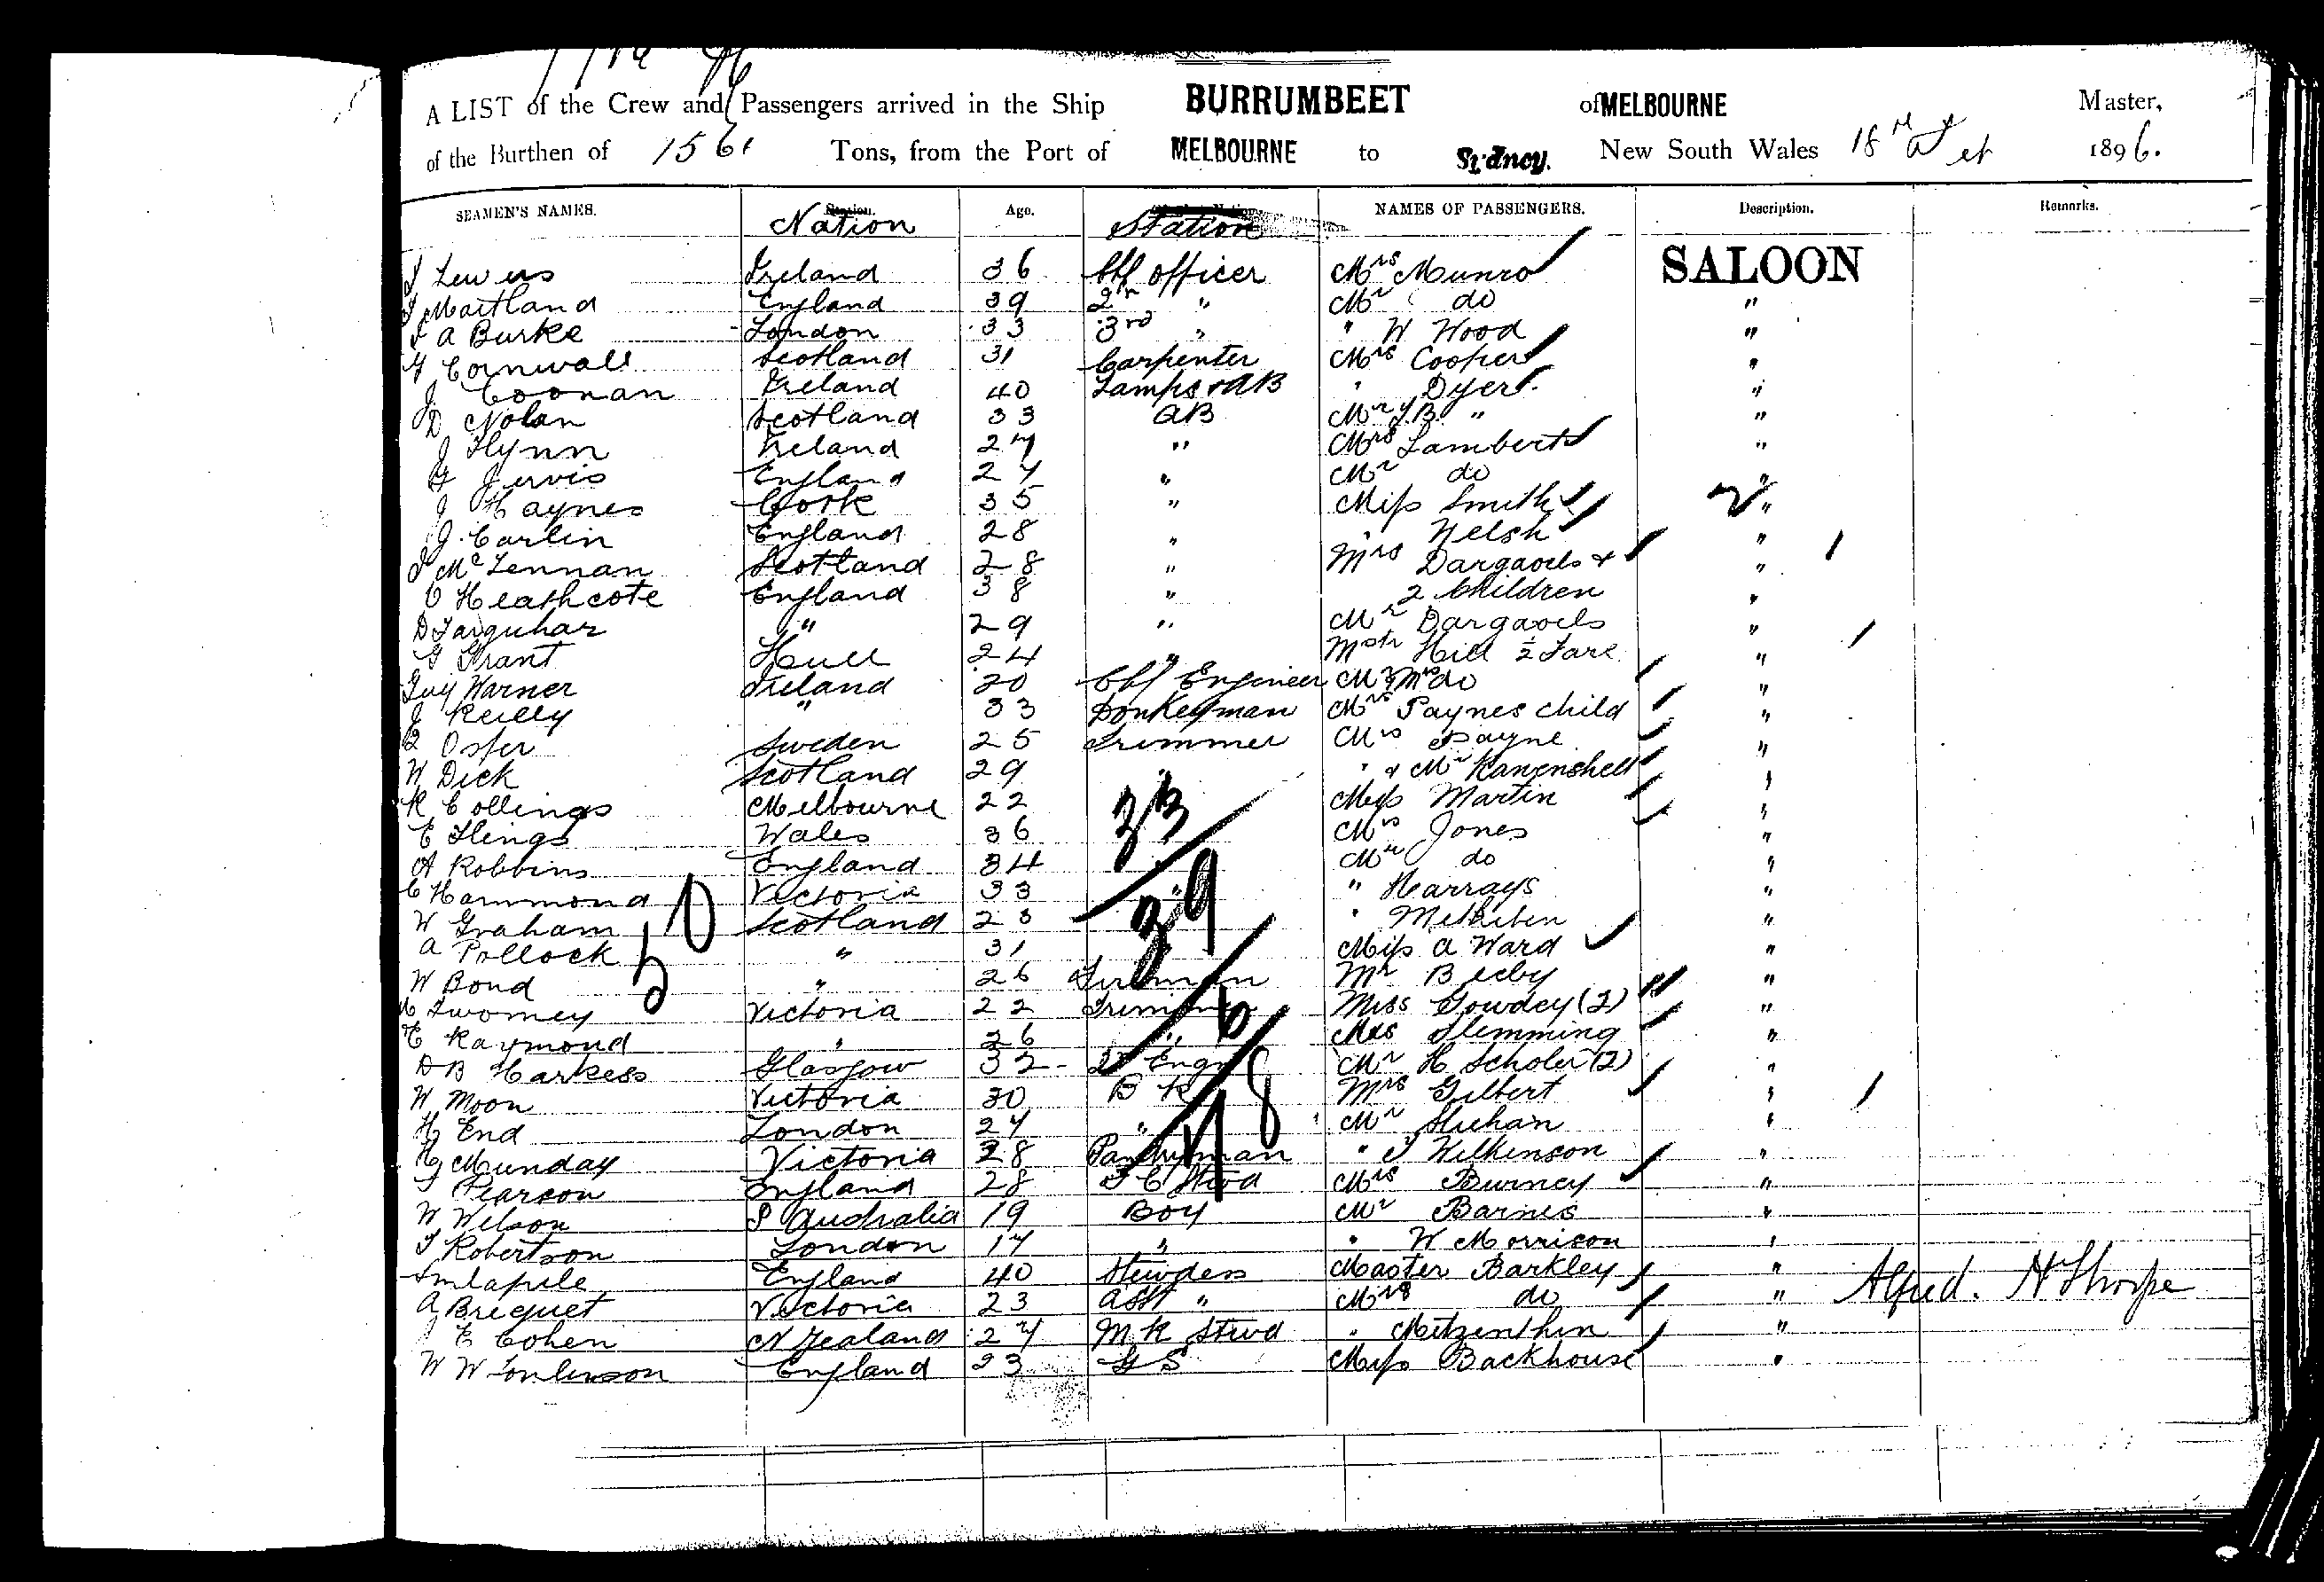 A LIST of the Crew and Passengers arrived in the Ship BURRUMBEET of MELBOURNE Master,
of the Burthen of 1561 Tons, from the Port of MELBOURNE to Sydney. New South Wales 18th 1896.
SEAMEN'S NAMES. Station. Nation Age. Station NAMES OF PASSENGERS. Description. Remarks.
Lewers Ireland 36 Chf officer Mrs Munro SALOON
Maitland England 39 2n " Mr do "
A Burke London 33 3rd " " W Wood "
Cornwall Scotland 31 Carpenter Mrs Cooper "
J Coonan Ireland 40 Lamps & AB " Dyer "
D Nolan Scotland 33 AB Mr J.B. " "
J Flynn Ireland 27 " Mrs Lambert "
G Jervis England 27 " Mr do "
J Haynes Cork 35 " Miss Smith "
J. Carlin England 28 " " Welsh "
McLennan Scotland 28 " Mrs Dargavels & "
C Heathcote England 38 " 2 Children "
D Farquhar " 29 " Mr Dargavels "
G Grant Hull 24 " Mstr Hill ½ Fare "
Guy Warner Ireland 20 Chf Engineer Mr & Mrs do "
J Reilly " 33 Donkeyman Mrs Paynes child "
Osfer Sweden 25 Trimmer Mrs Payne "
W Dick Scotland 29 " " & Mr Ranenshell "
R Collings Melbourne 22 33 Miss Martin "
E Hings Wales 36 Mrs Jones "
A Robbins England 34 Mr do "
C Hammond Victoria 33 39 " Harrays "
W Graham Scotland 28 " Methiben "
A Pollock " 31 Miss A Ward "
W Bond " 26 Fireman Mr Beeby "
Twomey Victoria 22 Trimmer Miss Gowdey (2) "
E Raymond " 26 " 6 Mrs Flemming "
D B Harkess Glasgow 32 2d Engr Mr H Scholer (2) "
W Moon Victoria 30 B R Mrs Gilbert "
H End London 27 " 78 Mr Sheehan "
H Munday Victoria 28 Pantryman " J Wilkinson "
Pearson England 28 F C Stwd Mrs Burney "
W Wilson S Australia 19 Boy Mr Barnes "
Robertson London 17 " " W Morrison "
England 40 Stewdess Master Barkley "
A Briquet Victoria 23 Asst " Mrs do " Alfred. H Thorpe
E Cohen N Zealand 27 M R Stwd " Mitzenthin "
W W Tomlinson England 23 G S Miss Backhouse "